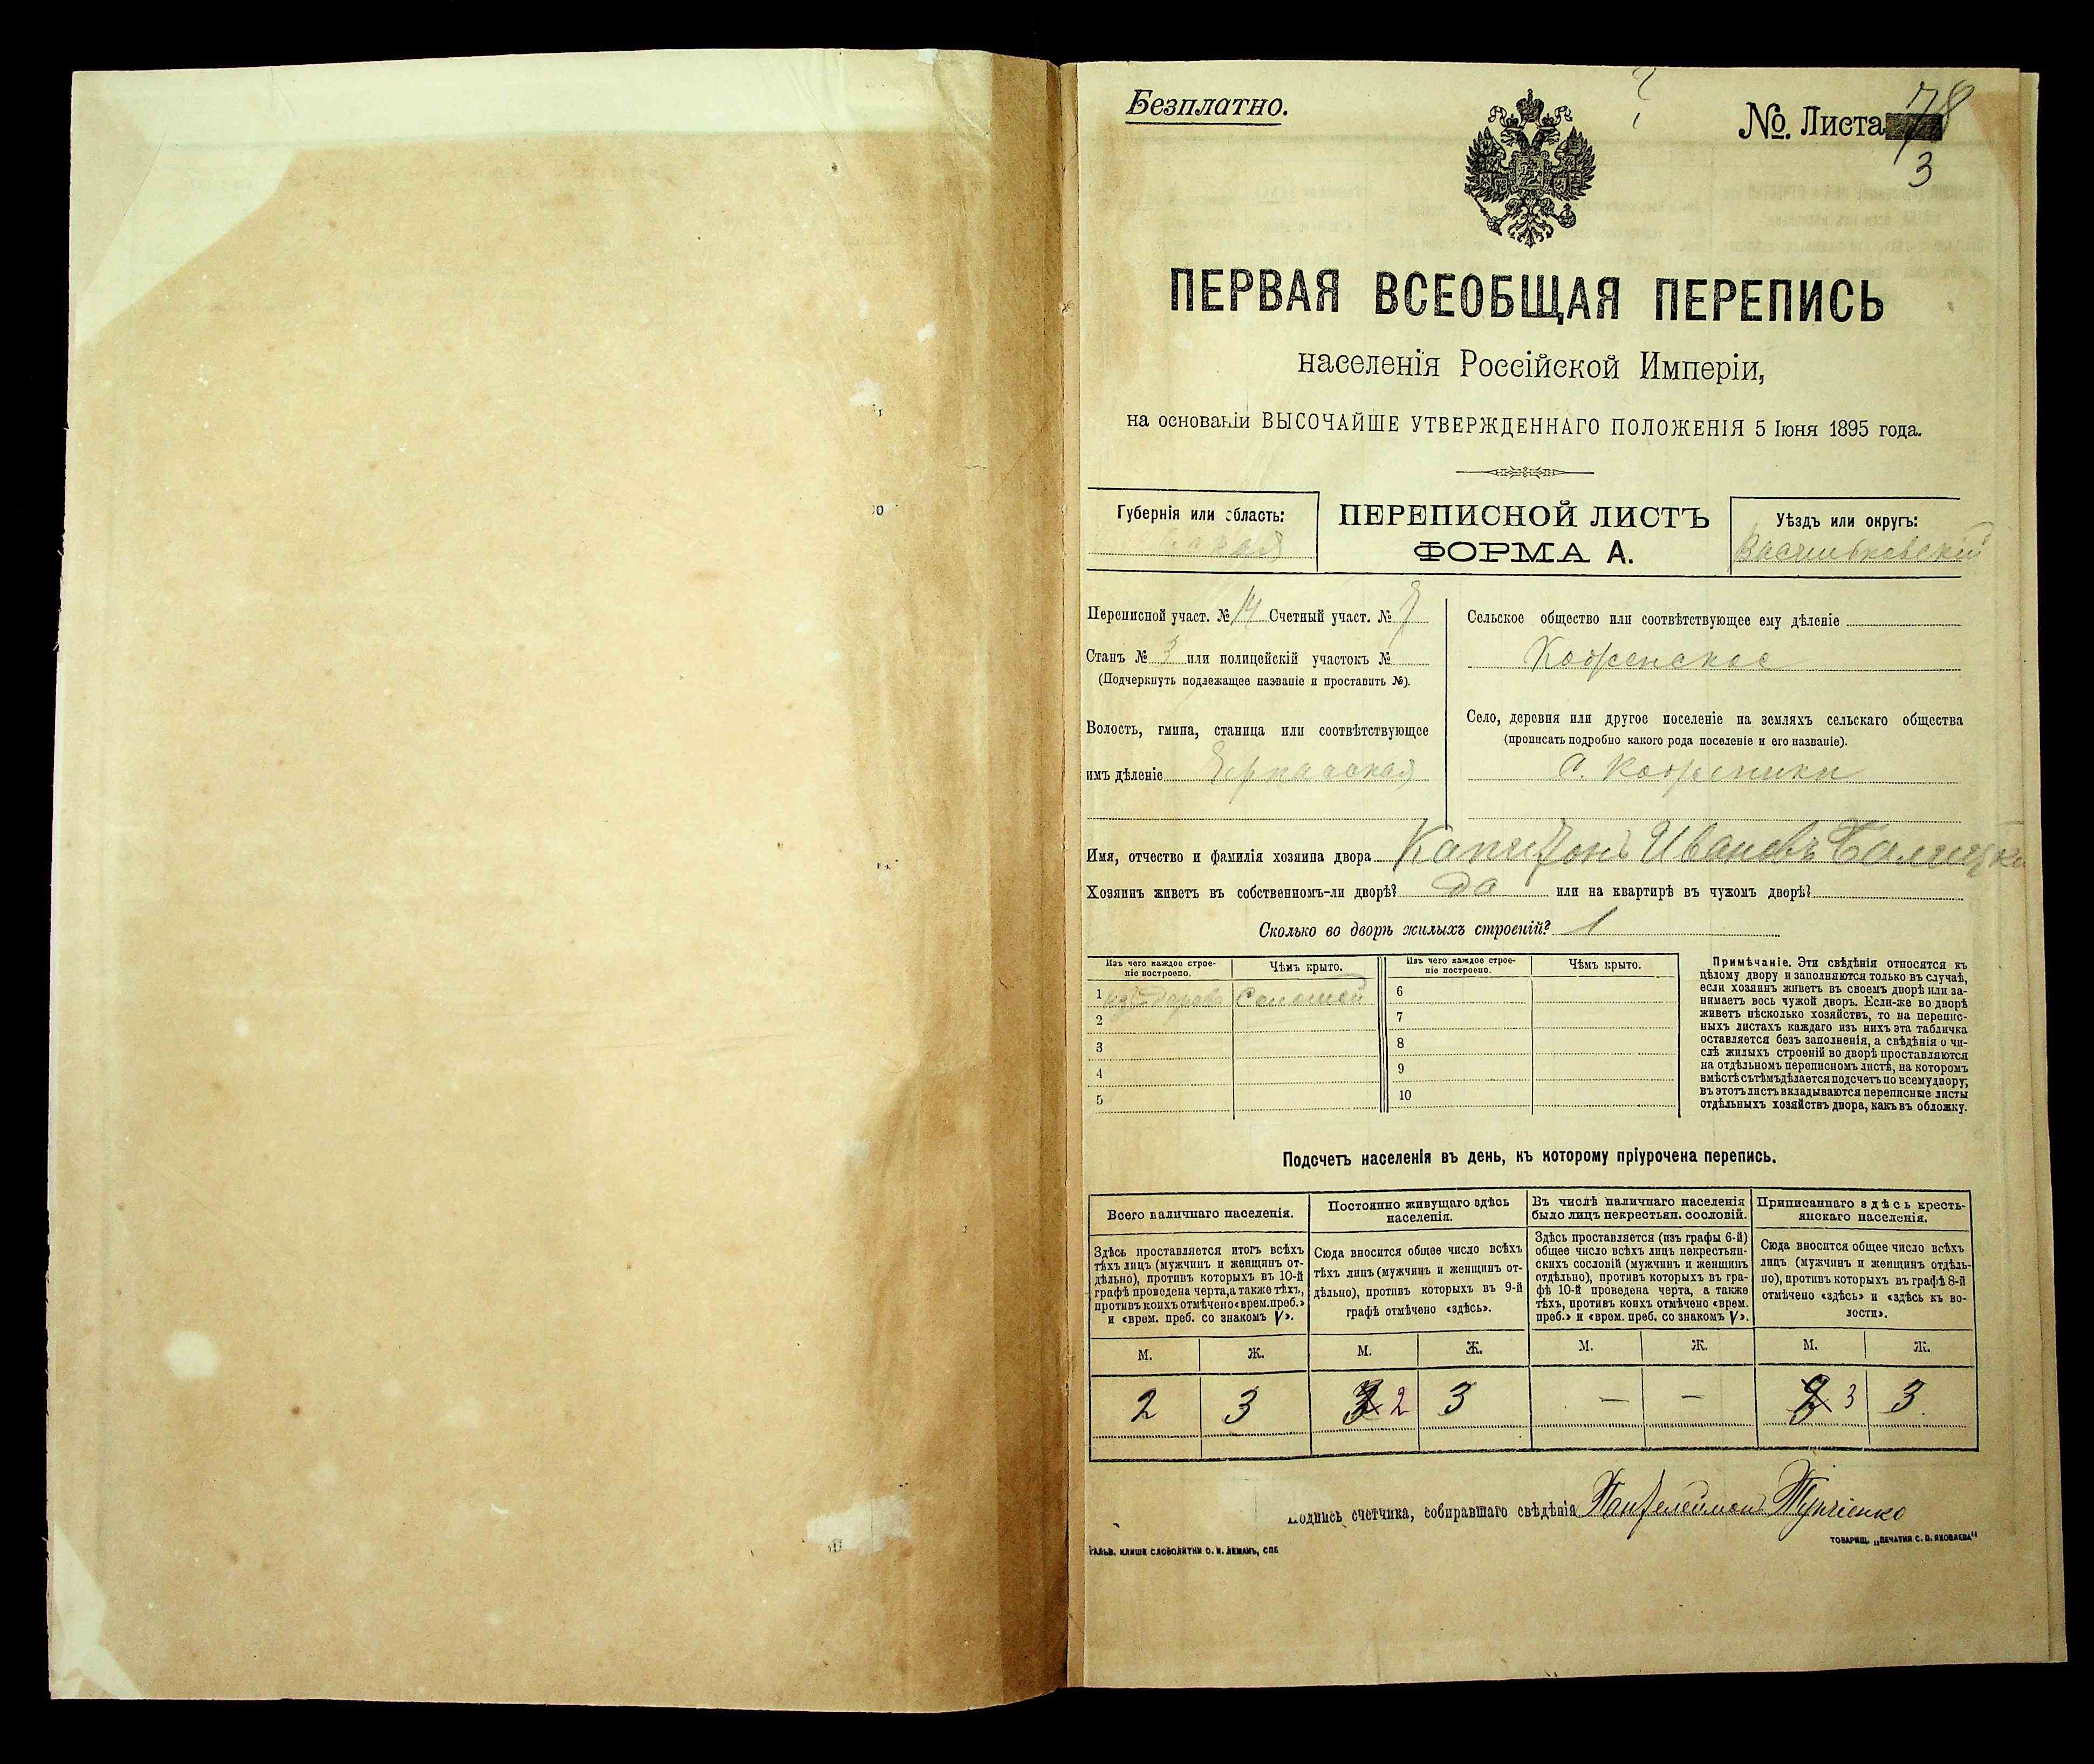 Безплатно.
№. Листа 78
3
ПЕРВАЯ ВСЕОБЩАЯ ПЕРЕПИСЬ
населенія Россійской Имперіи,
на основаніи ВЫСОЧАЙШЕ УТВЕРЖДЕННАГО ПОЛОЖЕНІЯ 5 Іюня 1895 года.
Губернія или область:
ПЕРЕПИСНОЙ ЛИСТЪ
ФОРМА А.
Уѣздъ или округъ:
Васильковскій
Переписной участ. № 14 Счетный участ. №
Станъ № 3 или полицейскій участокъ №
(Подчеркнуть подлежащее названіе и проставить №).
Волость, гмина, станица или соотвѣтствующее
имъ дѣленіе
Сельское общество или соотвѣтствующее ему дѣленіе
Кожанское
Село, деревня или другое поселеніе на земляхъ сельскаго общества
(прописать подробно какого рода поселеніе и его названіе).
С.
Имя, отчество и фамилія хозяина двора Капитонъ Ивановъ
Хозяинъ живетъ въ собственномъ-ли дворѣ? да или на квартирѣ въ чужомъ дворѣ?
Сколько во дворѣ жилыхъ строеній? 1
Изъ чего каждое строе-
ніе построено.
Чѣмъ крыто.
Изъ чего каждое строе-
ніе построено.
Чѣмъ крыто.
1 изъ дерева Соломой
2
3
4
5
6
7
8
9
10
Примѣчаніе. Эти свѣдѣнія относятся къ
цѣлому двору и заполняются только въ случаѣ,
если хозяинъ живетъ въ своемъ дворѣ или за-
нимаетъ весь чужой дворъ. Если-же во дворѣ
живетъ нѣсколько хозяйствъ, то на перепис-
ныхъ листахъ каждаго изъ нихъ эта табличка
оставляется безъ заполненія, а свѣдѣнія о чи-
слѣ жилыхъ строеній во дворѣ проставляются
на отдѣльномъ переписномъ листѣ, на которомъ
вмѣстѣ съ тѣмъ дѣлается подсчетъ по всему двору;
въ этотъ листъ вкладываются переписные листы
отдѣльныхъ хозяйствъ двора, какъ въ обложку.
Подсчетъ населенія въ день, къ которому пріурочена перепись.
Всего наличнаго населенія.
Здѣсь проставляется итогъ всѣхъ
тѣхъ лицъ (мужчинъ и женщинъ от-
дѣльно), противъ которыхъ въ 10-й
графѣ проведена черта, а также тѣхъ,
противъ коихъ отмѣчено «врем. преб.»
и «врем. преб. со знакомъ V».
Постоянно живущаго здѣсь
населенія.
Сюда вносится общее число всѣхъ
тѣхъ лицъ (мужчинъ и женщинъ от-
дѣльно), противъ которыхъ въ 9-й
графѣ отмѣчено «здѣсь».
Въ числѣ наличнаго населенія
было лицъ некрестьян. сословій.
Здѣсь проставляется (изъ графы 6-й)
общее число всѣхъ лицъ некрестьян-
скихъ сословій (мужчинъ и женщинъ
отдѣльно), противъ которыхъ въ гра-
фѣ 10-й проведена черта, а также
тѣхъ, противъ коихъ отмѣчено «врем.
преб.» и «врем. преб. со знакомъ V».
Приписаннаго здѣсь кресть-
янскаго населенія.
Сюда вносится общее число всѣхъ
лицъ (мужчинъ и женщинъ отдѣль-
но), противъ которыхъ въ графѣ 8-й
отмѣчено «здѣсь» и «здѣсь къ во-
лости».
М. Ж. М. Ж. М. Ж. М. Ж.
2 3 3 2 3 — — 2 3 3.
Подпись счетчика, собиравшаго свѣдѣнія Пантелеймонъ
ГАЛЬВ. КЛИШЕ СЛОВОЛИТНИ О. И. ЛЕМАНЪ, СПБ
ТОВАРИЩ. „ПЕЧАТНЯ С. П. ЯКОВЛЕВА"